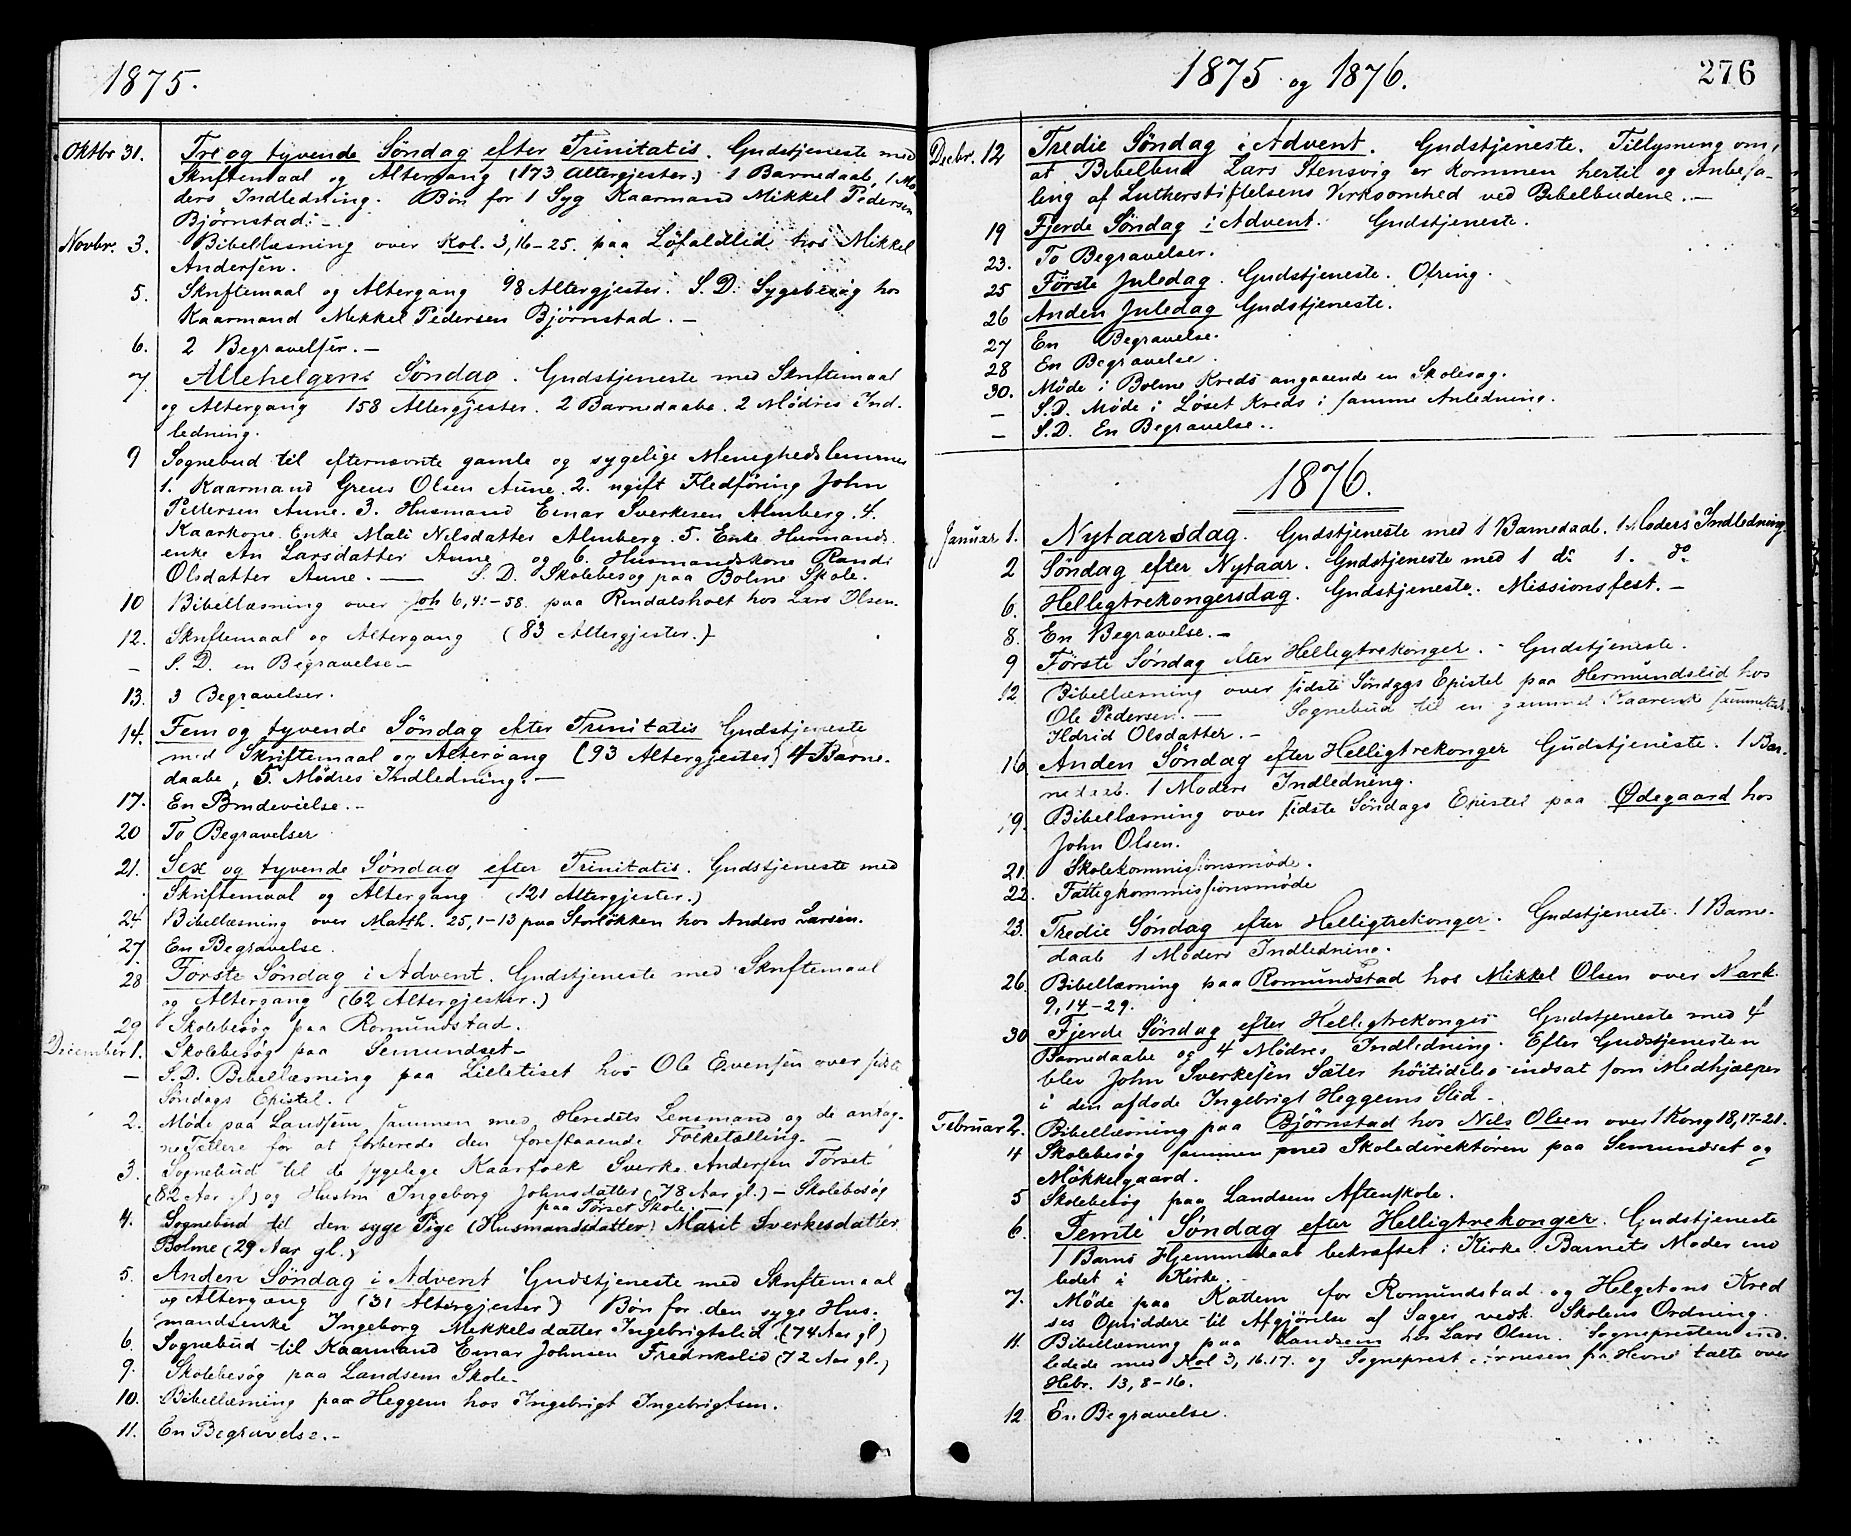 1875.
Oktbr 31. Tre og tyvende Söndag efter Trinitatis. Gudstjeneste med
Skriftemaal og Altergang (173 Altergjester.) 1 Barnedaab, 1 Mo
ders Indledning. Bön for 1 Syg Kaarmand Mikkel Pedersen
Björnstad. –
Novbr. 3. Bibellæsning over Kol. 3, 16–25. paa Löfaldlid hos Mikkel
Andersen.
5. Skriftemaal og Altergang 98 Altergjester. S. D. Sygebesög hos
Kaarmand Mikkel Pedersen Björnstad. –
6. 2 Begravelser. –
7 Allehelgens Söndag. Gudstjeneste med Skriftemaal
og Altergang 158 Altergjester. 2 Barnedaabe. 2 Mödres Ind-
ledning.
9 Sognebud til efternævnte gamle og sygelige Menighedslemmer
1. Kaarmand Greus Olsen Aune. 2. ugift Fledföring John
Pettersen Aune. 3. Husmand Einar Sverkesen Almberg. 4.
Kaarkone Enke Mali Nilsdatter Almberg. 5. Enke Husmands
enke An Larsdatter Aune og 6. Husmandskone Randi
Olsdatter Aune. — S. D. Skolebesög paa Bolme Skole.
10 Bibellæsning over Joh 6, –58. paa Rindalsholt hos Lars Olsen.
12. Skriftemaal og Altergang (83 Altergjester.)
– S. D. en Begravelse –
13. 3 Begravelser.
14. Fem og tyvende Söndag efter Trinitatis Gudstjeneste
med Skriftemaal og Altergang (93 Altergjester) 4 Barne-
daabe, 5. Mödres Indledning. –
17. En Brudevielse. –
20 To Begravelser
21. Sex og tyvende Söndag efter Trinitatis. Gudstjeneste med
Skriftemaal og Altergang (121 Altergjester.)
24. Bibellæsning over Matth. 25, 1–13 paa Storlökken hos Anders Larsen.
27. En Begravelse.
28 Förste Söndag i Advent. Gudstjeneste med Skriftemaal
og Altergang (62 Altergjester.)
29 Skolebesög paa Romundstad.
December 1. Skolebesög paa Semundset –
– S. D. Bibellæsning paa Lilletiset hos Ole Evensen over sidste
Söndags Epistel.
2. Möde paa Landsem sammen med Heredets Lensmand og de antag-
ne Tellere for at forberede den forestaaende Folketælling. –
3. Sognebud til de sygelige Kaarfolk Sverke Andersen Törset
(82 Aar gl) og Hustru Ingeborg Johnsdatter (78 Aar gl.) – Skolebesög
paa Törset Skole. –
4. Sognebud til den syge Pige (Husmandsdatter) Marit Sverkesdatter
Bolme (29 Aar gl.)
5. Anden Söndag i Advent Gudstjeneste med Skriftemaal
og Altergang (31 Altergjester) Bön for den syge Hus-
mandsenke Ingeborg Mikkelsdatter Ingebrigtslid (74 Aar gl)
6. Sognebud til Kaarmand Einar Johnsen Fredrikslid (72 Aar gl.)
9. Skolebesög paa Landsem Skole –
10. Bibellæsning paa Heggem hos Ingebrigt Ingebrigtsen.
11. En Begravelse. –
1875 og 1876. 276
Decbr. 12 Tredie Söndag i Advent. Gudstjeneste. Tillysning om,
at Bibelbud Lars Stensvig er kommen hertil og Anbefa-
ling af Lutherstiftelsens Virksomhed ved Bibelbudene. –
19 Fjerde Söndag i Advent. Gudstjeneste.
23. To Begravelser.
25 Förste Juledag. Gudstjeneste. Ofring.
26 Anden Juledag Gudstjeneste.
27 En Begravelse.
28 En Begravelse.
30. Möde i Bolme Kreds angaaende en Skolesag.
– S. D. Möde i Löset Kreds i samme Anledning.
– S. D. En Begravelse.
1876.
Januar 1. Nytaarsdag. Gudstjeneste med 1 Barnedaab. 1 Moders Indledning
2 Söndag efter Nytaar. Gudstjeneste med 1 do 1. do.
6. Helligtrekongersdag. Gudstjeneste. Missionsfest. –
8. En Begravelse. –
9 Förste Söndag efter Helligtrekonger. – Gudstjeneste.
12 Bibellæsning over sidste Söndags Epistel paa Hermundslid hos
Ole Pedersen. — Sognebud til en gammel Kaarenke sammesteds
Ildrid Olsdatter. –
16 Anden Söndag efter Helligtrekonger Gudstjeneste. 1 Bar-
nedaab. 1 Moders Indledning.
19. Bibellæsning over sidste Söndags Epistel paa Ødegaard hos
John Olsen.
21. Skolekommissionsmöde.
22. Fattigkommissionsmöde
23. Tredie Söndag efter Helligtrekonger. Gudstjeneste. 1 Barne-
daab 1 Moders Indledning.
26. Bibellæsning paa Romundstad hos Mikkel Olsen over Mark.
9, 14–29.
30 Fjerde Söndag efter Helligtrekonger Gudstjeneste med 4
Barnedaabe og 4 Mödres Indledning. Efter Gudstjenesten
blev John Sverkesen Sæter höitidelig indsat som Medhjælper
i den afdöde Ingebrigt Heggems Sted –
Februar 2. Bibellæsning paa Björnstad hos Nils Olsen over 1 Kong 18, 17–21.
4 Skolebesög sammen med Skoledirektören paa Semundset og
Mökkelgaard.
5 Skolebesög paa Landsem Aftenskole.
6. Femte Söndag efter Helligtrekonger. Gudstjeneste
1 Barns Hjemmedaab bekræftet i Kirke. Barnets Moder ind
ledet i Kirke.
7. Möde paa Kattem for Romundstad og Helgetons Kred
ses Opsiddere til Afgjörelse af Sager vedk. Skolens Ordning.
11. Bibellæsning paa Landsem hos Lars Olsen. Sognepresten ind-
ledede med Kol 3, 16.17. og Sogneprest Arnesen fra Hevne talte over
Hebr. 13, 8–16.
12 En Begravelse.